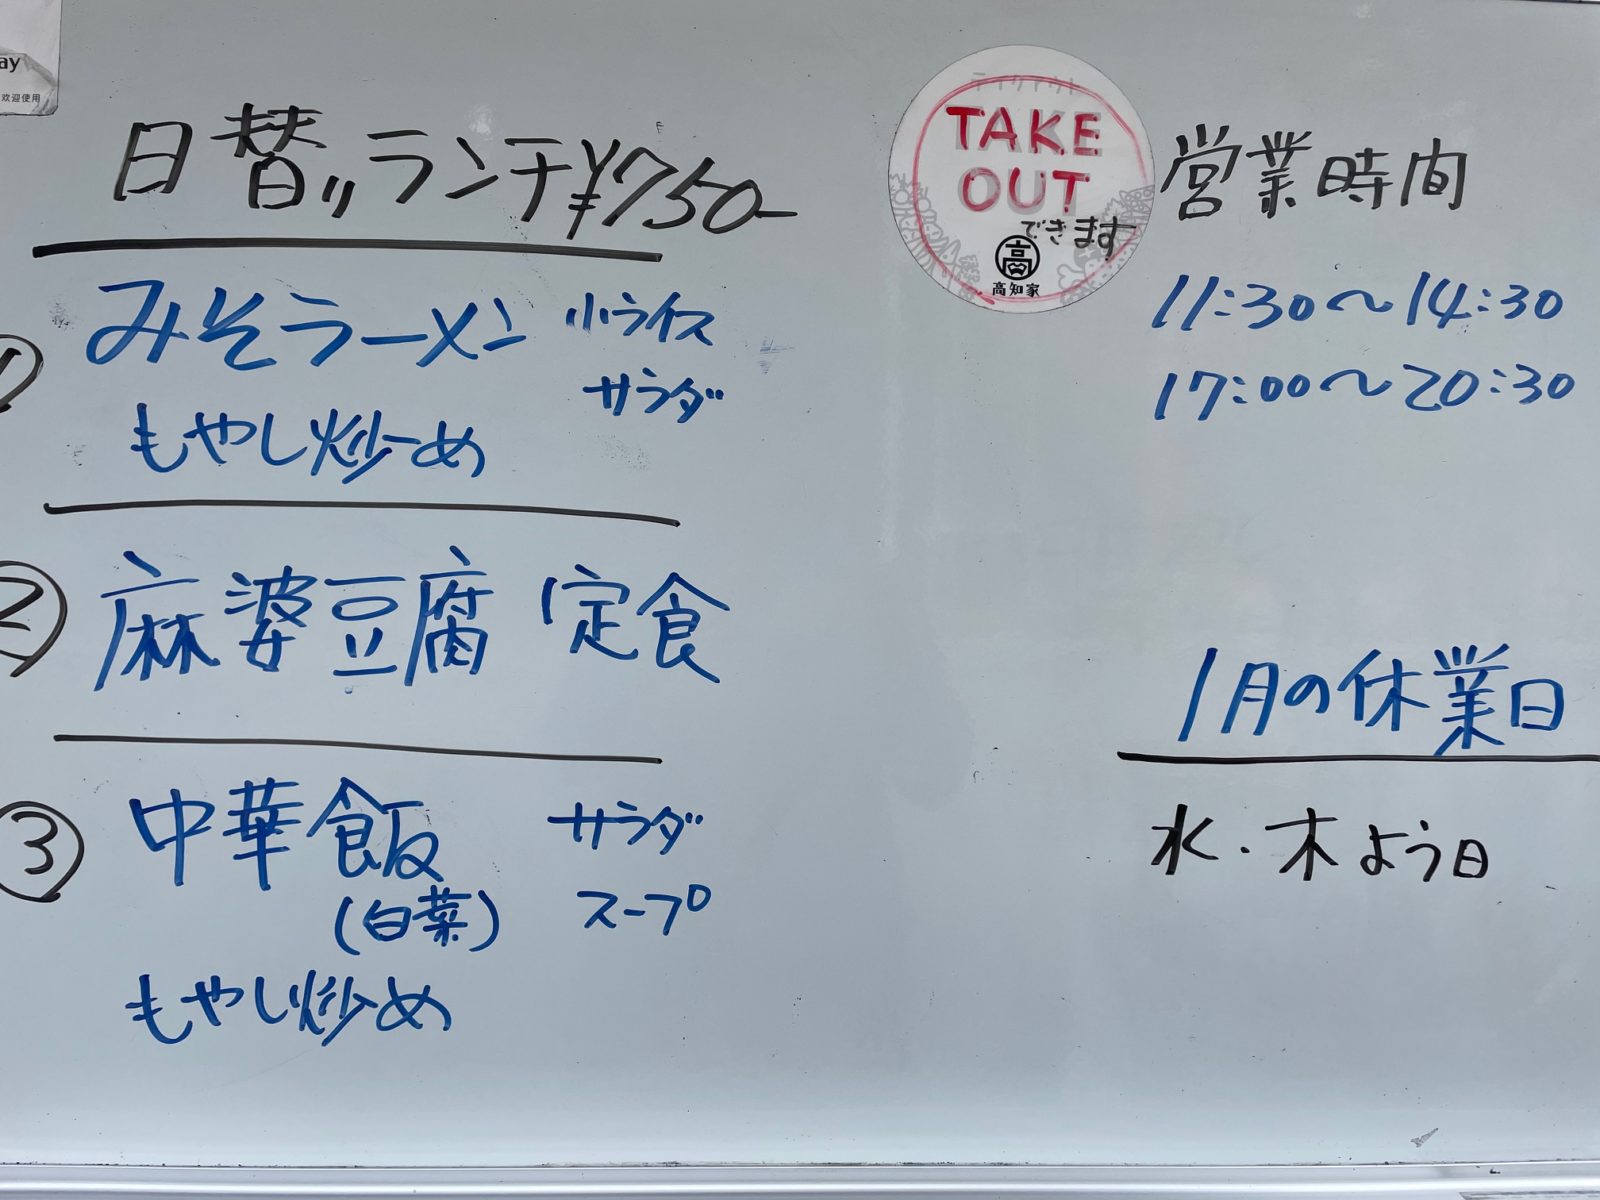 ay
欢迎使用
日替りランチ¥750-
① みそラーメン 小ライス
サラダ
もやし炒め
② 麻婆豆腐 定食
③ 中華飯 サラダ
(白菜) スープ
もやし炒め
テイクアウト
TAKE
OUT
できます
高知家
営業時間
11:30〜14:30
17:00〜20:30
1月の休業日
水・木よう日